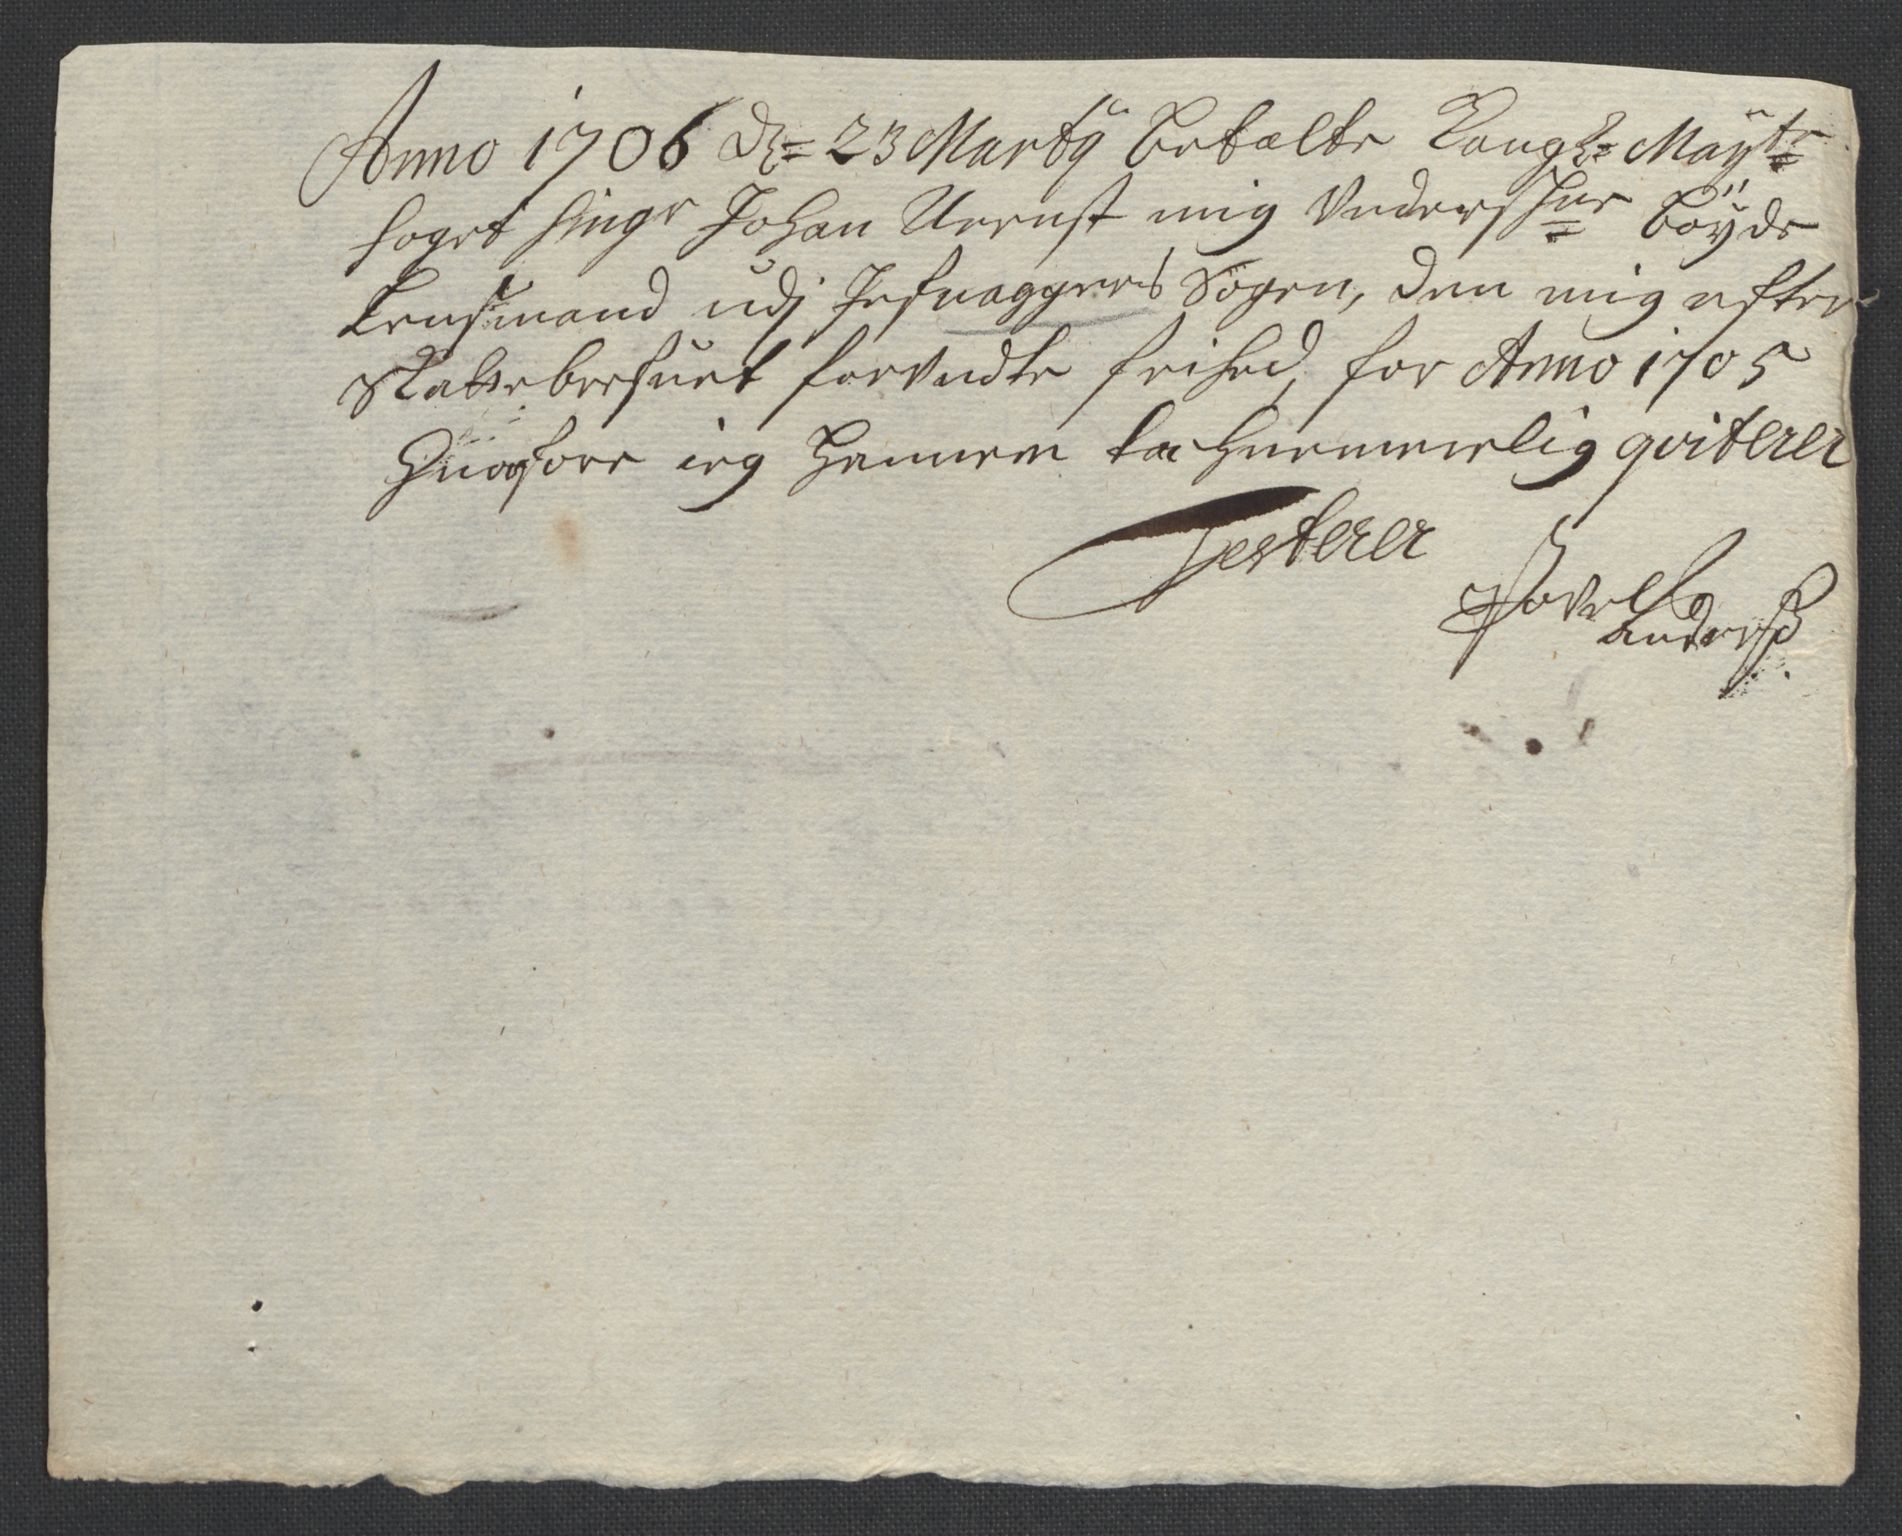 Anno 1706 d: 23 Martÿ betalte Kongl: Maÿts
foget Singr Johan Ernst mig Underschr bøÿde
Lensmand udj Jefnaggers Sogen, den mig efter
Skattebrefuet forundte frihed, for Anno 1705
Huorfore ieg hannem tachnemmelig qviterer
Testerer
Povel
Anderß